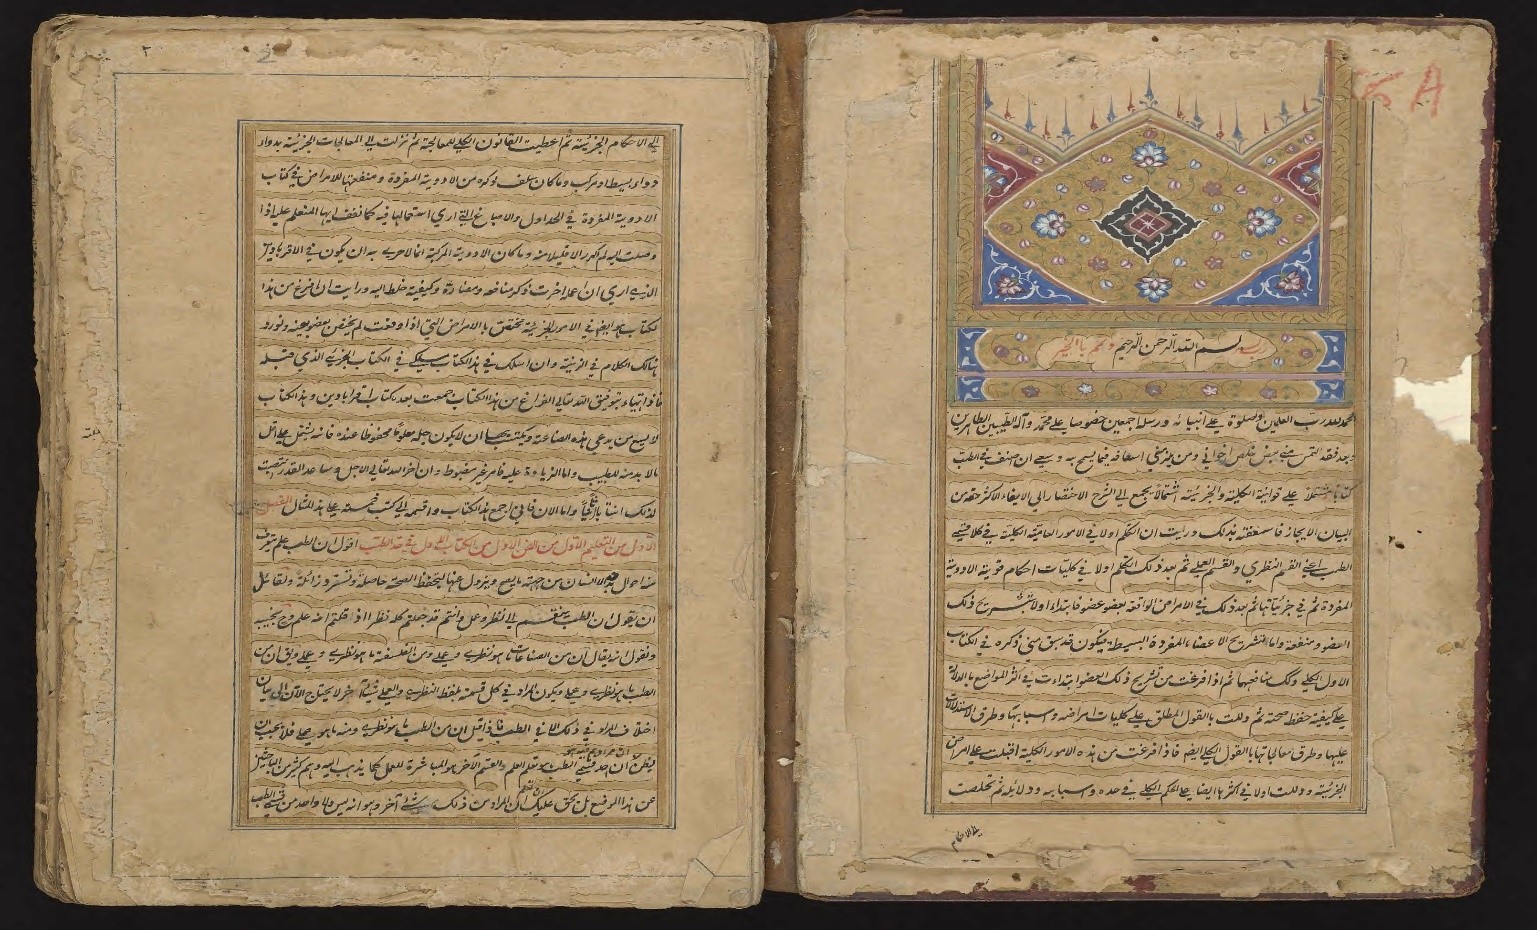 بسم الله الرحمن الرحيم وتمم بالخير
الحمد لله رب العلمين والصلوة على أنبيائه ورسله اجمعين خصوصا على محمد وآله الطيبين الطاهرين
وبعد فقد التمس مني بعض خلص اخواني ومن يلزمني اسعافه فيما يسمح به وسعي ان اصنف في الطب
كتابا مشتملا على قوانينه الكلية والجزئية اشتمالا يجمع الى الشرح الاختصار والى الايفاء الاكثر حقه من
البيان الايجاز فاسعفته بذلك ورايت ان اتكلم اولا في الامور العامية الكلية في كلا قسمي
الطب اعني القسم النظري والقسم العملي ثم بعد ذلك اتكلم اولا في كليات احكام قوى الادوية
المفردة ثم في جزئياتها ثم بعد ذلك في الامراض الواقعة بعضو عضو فابتداء اولا بتشريح ذلك
العضو ومنفعته واما تشريح الاعضاء المفردة البسيطة فيكون قد سبق مني ذكره في الكتاب
الاول الكلي وكذلك منافعها ثم اذا فرغت من تشريح ذلك العضو ابتدات في اكثر المواضع بالدلالة
على كيفية حفظ صحته ثم دللت بالقول المطلق على كليات امراضه واسبابها وطرق الاستدلالات
عليها وطرق معالجاتها بالقول الكلي ايضا فاذا فرغت من هذه الامور الكلية اقبلت على امراض
الجزئية ودللت اولا في اكثرها ايضا على الحكم الكلي في حده واسبابه ودلائله ثم تخلصت
الى الاحكام
A
2
٢
الى الاحكام الجزئية ثم اعطيت القانون الكلي للمعالجة ثم نزلت الى المعالجات الجزئية بدواء
دواء بسيط او مركب وما كان سلف ذكره من الادوية المفردة ومنفعتها للامراض في كتاب
الادوية المفردة في الجداول والاصباغ التي اري استعمالها فيه كما تقف ايها المتعلم عليه اذا
وصلت اليه لم اكرر الا قليلا منه وما كان الادوية المركبة انما الاحرى به ان يكون في الاقراباذين
الذي اري ان اعمله اخرت ذكر منافعه وكيفية خلطه اليه ورايت ان افرغ من هذا
الكتاب في الامور الجزئية مختص بالامراض التي اذا وقعت لم يختص بعضو بعينه ونورد
هنالك الكلام في الزينة وان اسلك في هذا الكتاب مسلكي في الكتاب الجزئي الذي قبله
فاذا تهياء بتوفيق الله تعالى الفراغ من هذا الكتاب جمعت بعده كتاب اقراباذين وهذا الكتاب
لا يسع من يدعي هذه الصناعة ويكتسب بها ان لا يكون جله معلوما محفوظا عنده فانه يشتمل على اقل
ما لا بد منه للطبيب واما الزيادة عليه فامر غير مضبوط وان اخر الله تعالى في الاجل وساعد القدر انتصبت
لذلك انتصابا ثانيا واما الان فاني اجمع هذا الكتاب واقسمه الى كتب خمسة على هذا المثال الفصل
الاول من التعليم الاول من الفن الاول من الكتاب الاول في حد الطب اقول ان الطب علم يتعرف
منه احوال بدن الانسان من جهة ما يصح ويزول عنها لتحفظ الصحة حاصلة وتسترد زائلة ولقائل
ان يقول ان الطب ينقسم الى نظر وعمل وانتم قد جعلتم كله نظرا اذ قلتم انه علم وح نجيبه
ونقول انه يقال ان من الصناعات ما هو نظري وعملي ومن الفلسفة ما هو نظري وعملي ويق ان من
الطب ما هو نظري وعملي ويكون المراد في كل قسمة بلفظ النظري والعملي شيئا آخر لا يحتاج الآن الى بيان
اختلاف المراد في ذلك الا في الطب فاذا قيل ان من الطب ما هو نظري ومنه ما هو عملي فلا يجب ان
يظن ان احد قسمي الطب هو تعلم العلم والقسم الآخر هو المباشرة للعمل كما يذهب اليه وهم كثير من الباحثين
عن هذا الموضع بل يحق عليك ان تعلم ان المراد من ذلك شئ آخر وهو انه ليس ولا واحد من قسمي الطب